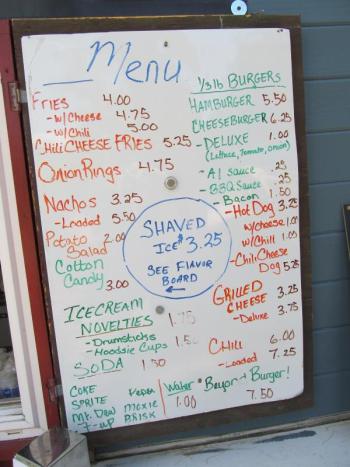 Menu
FRIES 4.00
- W/CHEESE 4.75
- W/CHILI 5.00
CHILI CHEESE FRIES 5.25
ONION RINGS 4.75
NACHOS 3.25
- Loaded 5.50
Potato Salad 2.00
Cotton Candy 3.00
SHAVED
ICE 3.25
SEE FLAVOR
BOARD
ICECREAM
NOVELTIES 1.75
- Drumsticks
- Hoodsie Cups 1.50
SODA 1.50
COKE
SPRITE MOXIE
Mt. Dew BRISK
7-up
Water
1.00
1/3 lb BURGERS
HAMBURGER 5.50
CHEESEBURGER 6.25
- DELUXE 1.00
(Lettuce, Tomato, Onion)
- A1 sauce .25
- BBQ Sauce .25
- Bacon 1.50
- Hot Dog 3.25
w/cheese 1.00
w/chili 1.00
- Chili Cheese
Dog 5.25
GRILLED
CHEESE 3.25
- Deluxe 3.75
CHILI 6.00
- Loaded 7.25
Beyond Burger!
7.50